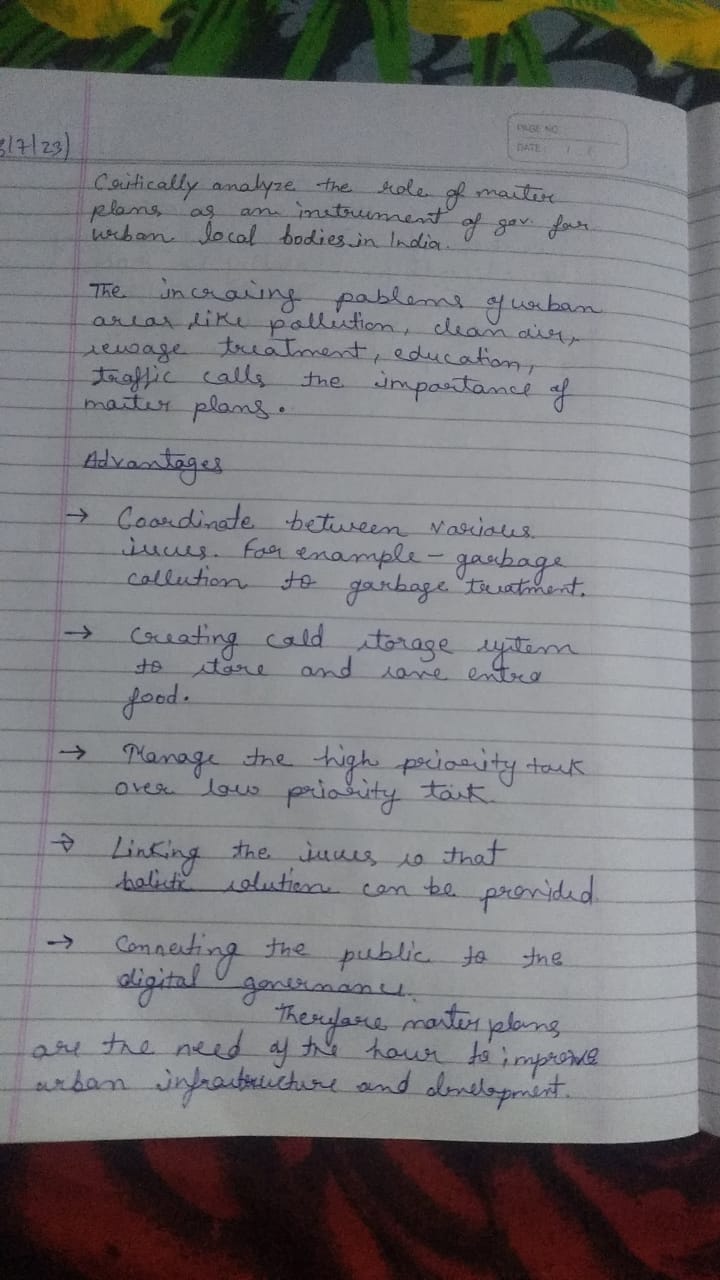 3/7/23)
PAGE NO
DATE / /
Critically analyze the role of master
plans as an instrument of gov. for
urban local bodies in India.
The incraising pablems of urban
areas like pollution, clean air,
sewage treatment, education,
traffic calls the importance of
master plans.
Advantages
→ Coordinate between various
issues. For example - garbage
collection to garbage treatment.
→ Creating cold storage system
to store and save extra
food.
→ Manage the high priority task
over low priority task.
→ Linking the issues so that
holistic solution can be provided
→ Connecting the public to the
digital governance.
Therefore master plans
are the need of the hour to improve
urban infrastructure and development.